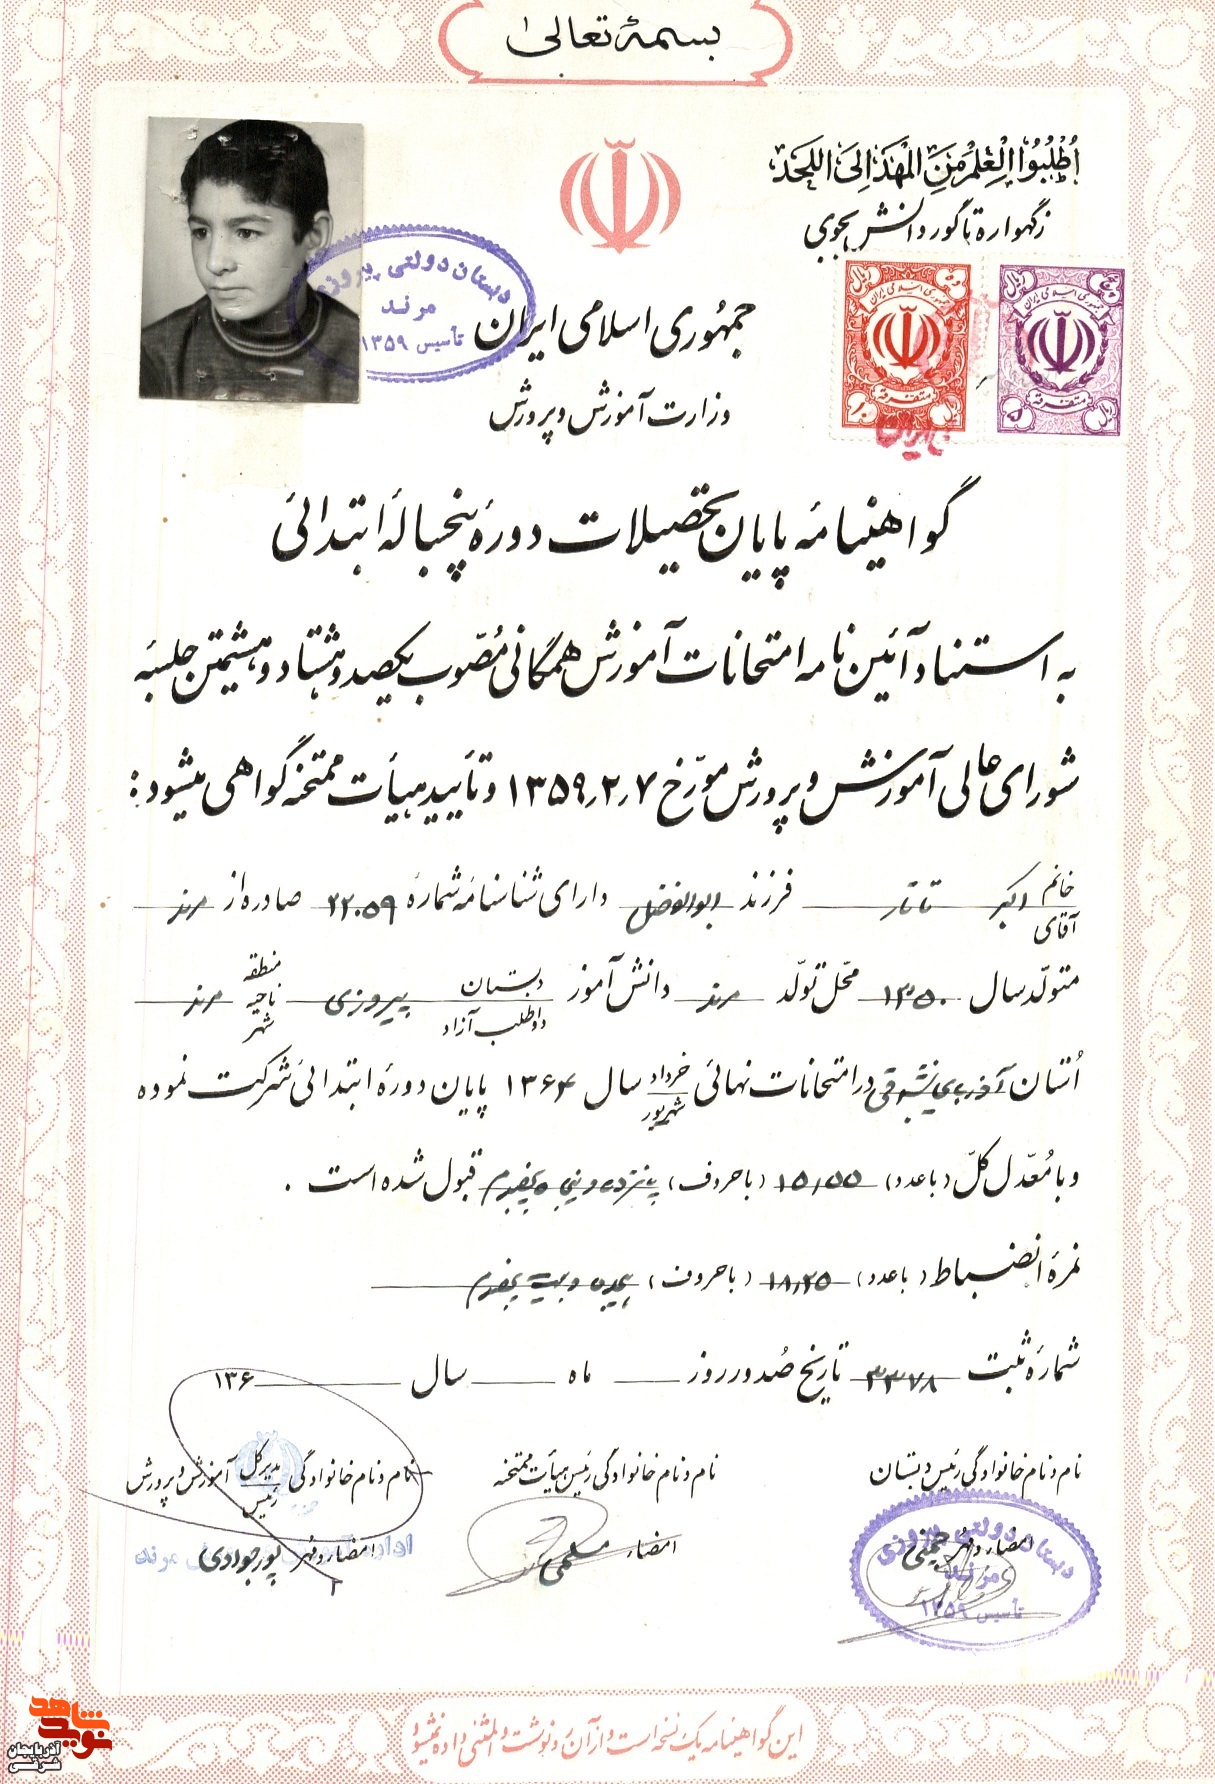 بسمهٔ تعالی
اُطْلُبُوا الْعِلْمَ مِنَ الْمَهْدِ اِلَی اللَّحَدْ
زگهواره تا گور دانش بجوی
دبستان دولتی پیروزی
مرند
تأسیس ۱۳۵۹
جمهوری اسلامی ایران
وزارت آموزش و پرورش
گواهینامهٔ پایان تحصیلات دورهٔ پنجسالهٔ ابتدائی
به استناد آئین نامه امتحانات آموزش همگانی مُصّوب یکصد و هشتاد و هشتمین جلسهٔ
شورای عالی آموزش و پرورش مورّخ ۱۳۵۹٫۲٫۷ و تأیید هیأت ممتحنه گواهی میشود:
خانم آقای اکبر تاتار فرزند ابوالفضل دارای شناسنامهٔ شمارهٔ ۲۲۰۵۹ صادره از مرند
متولّد سال ۱۳۵۰ محّل تولّد مرند دانش آموز دبستان داوطلب آزاد پیروزی منطقه ناحیه شهر مرند
اُستان آذربایجانشرقی در امتحانات نهائی خرداد شهریور سال ۱۳۶۴ پایان دورهٔ ابتدائی شرکت نموده
و با مُعّدل کلّ (با عدد) ۱۵٫۵۵ (با حروف) پانزده و پنجاه و پنجصدم قبول شده است .
نمرهٔ انضباط (با عدد) ۱۸٫۲۵ (با حروف) هجده و بیست و پنجصدم
شمارهٔ ثبت ۳۳۷۸ تاریخ صُدور روز ماه سال ۱۳۶
نام و نام خانوادگی رئیس دبستان
نام و نام خانوادگی رئیس هیأت ممتحنه
نام و نام خانوادگی مدیر کل رئیس آموزش و پرورش
امضاء و مُهر
امضاء
امضاء و مُهر پورجوادی
دبستان دولتی پیروزی
مرند
تأسیس ۱۳۵۹
این گواهینامه یک نسخه است و از آن رونوشت و المثنی داده نمیشود
نوید شاهد
آذربایجان شرقی